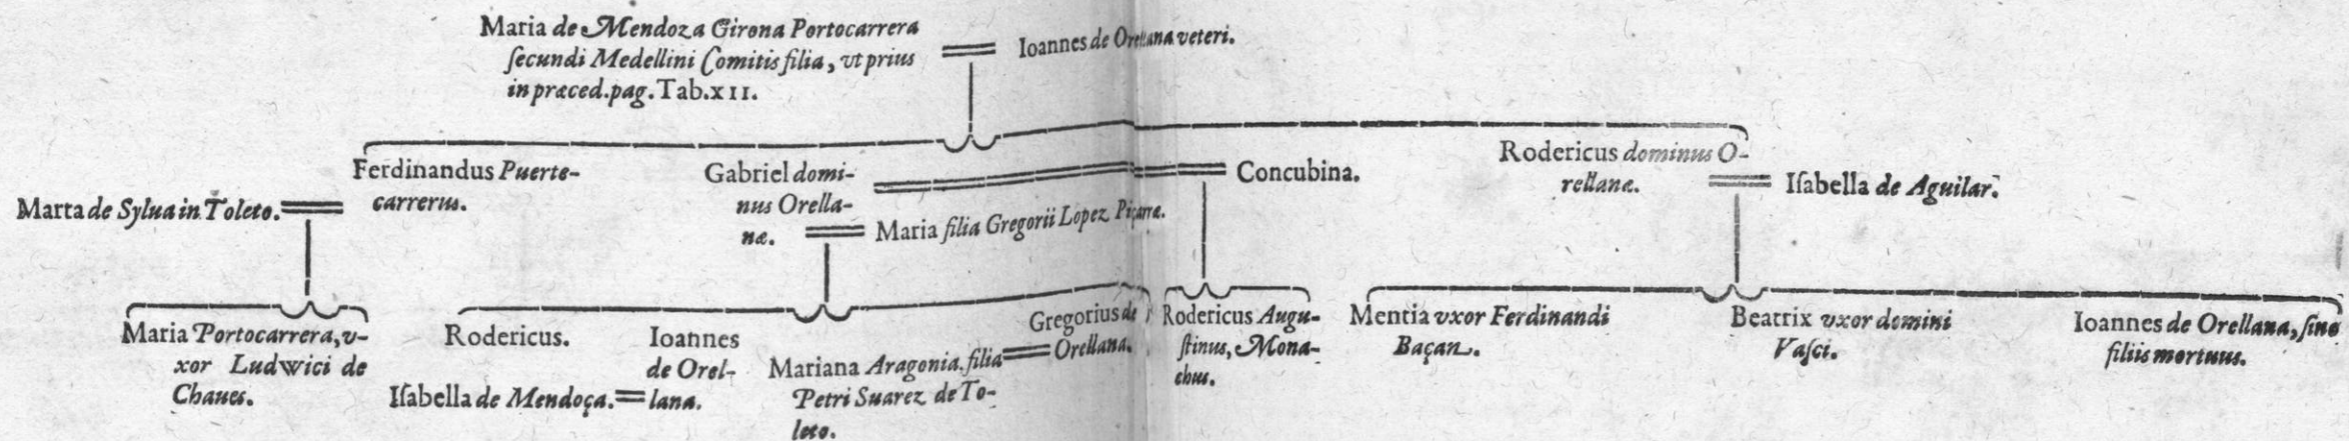 Maria de Mendoza Girona Portocarrera
ſecundi Medellini Comitis filia, vt prius
in præced. pag. Tab. XII.
Ioannes de Orellana veteri.
Ferdinandus Puerte-
carrerus.
Marta de Sylua in Toleto.
Gabriel domi-
nus Orella-
næ.
Concubina.
Maria filia Gregorii Lopez Piçarræ.
Rodericus dominus O-
rellanæ.
Iſabella de Aguilar.
Maria Portocarrera, v-
xor Ludwici de
Chaues.
Rodericus.
Iſabella de Mendoça.
Ioannes
de Orel-
lana.
Mariana Aragonia. filia
Petri Suarez de To-
leto.
Gregorius de
Orellana.
Rodericus Augu-
ſtinus, Mona-
chus.
Mentia vxor Ferdinandi
Baçan.
Beatrix vxor domini
Vaſci.
Ioannes de Orellana, ſine
filiis mortuus.